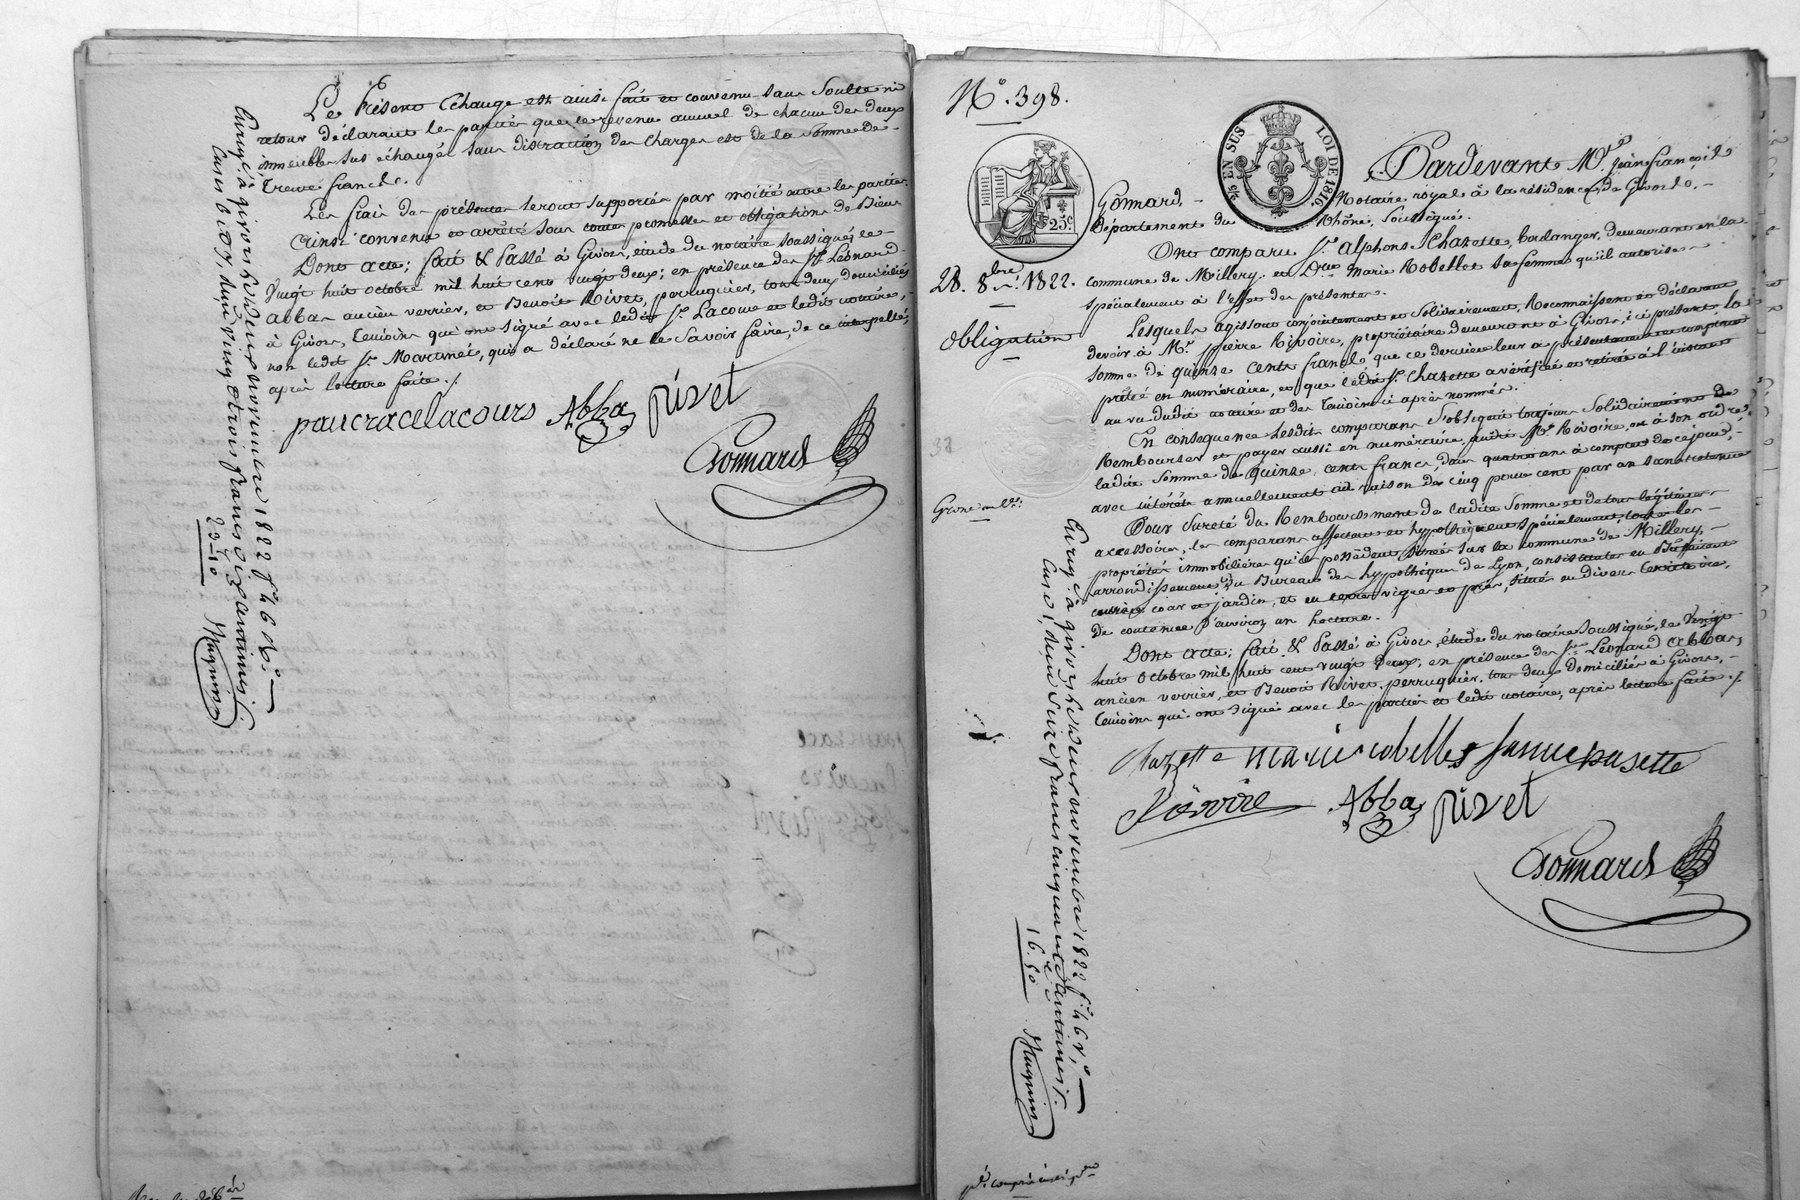 Le Présent Echange est ainsi fait et convenu sans Soulte ni
retour déclarant les parties que le revenu annuel de chacun des deux
immeubles sus échangés sans distraction des charges est de la somme de
Trente francs.
Les frais des présentes seront supportés par moitié entre les parties.
Ainsi convenu et arrêté sous toute promesses et obligations de Biens
Dont acte; fait & Passé à Givors, étude du notaire soussigné, le
Vingt huit octobre mil huit cent vingt deux; en présence des Srs Léonard
Abba ancien verrier, et Benoit Rivet, perruquier, tous deux domiciliés
à Givors, Témoins qui ont signé avec ledit Sr Lacour et ledit notaire,
non ledit Sr Martinet, qui a déclaré ne le Savoir faire, de ce interpellé,
après lecture faite./.
pancrace lacours Abba rivet
Gonnard
Enreg. à givors le deux novembre 1822 fo 46 Vo
vingt trois francs dix centimes
23-10
N° 398.
25c
EN SUS
LOI DE 1816.
Pardevant Me Jean françois
Gonnard, Notaire royal à la résidence de Givors
département du Rhône, Soussigné.
28. 8bre 1822.
Ont comparu Sr alphonse Chazette, boulanger, demeurant en la
commune de Millery, et Dme Marie Robellet sa femme qu'il autorise
spécialement à l'effet des présentes.
Obligation
Lesquels agissant conjointement et Solidairement, Reconnaissent et déclarent
devoir à Mr pierre Rivoire, propriétaire demeurant à Givors, ici présent, la
somme de quinze cents francs que ce dernier leur a présentement et comptant
prêté en numéraire, et que ledit Sr Chazette a vérifiée et retirée à l'instant
au vu dudit notaire et des témoins ci après nommés.
En conséquence lesdits comparans s'obligent toujours Solidairement de
Rembourser et payer aussi en numéraire, audit Mr Rivoire, ou à son ordre,
ladite Somme de quinze cents francs, dans quatre ans à compter de ce jour,
avec intérêts annuellement au raison de cinq pour cent par an sans retenue
Pour Sureté du Remboursement de ladite Somme et de tous légitimes
accessoires, les comparans affectent et hypothèquent spécialement, toutes les
propriétés immobilières qu'ils possèdent situés sur la commune de Millery,
arrondissement du Bureau des hypothèques de Lyon, consistantes en Bâtiment
cour et jardin, et en terres vignes et prés, situés en divers Territoires,
De contenue d'environ un hectare.
Dont acte; fait & Passé à Givors, étude du notaire soussigné, le Vingt
huit Octobre mil huit cent vingt deux; en présence des Srs Léonard Abba,
ancien verrier, et Benoit Rivet, perruquier, tous deux domiciliés à Givors,
témoins qui ont signé avec les parties et ledit notaire, après lecture faite./.
Chazette marie robellet famme chasette
Rivoire Abba rivet
Gonnard
Enreg. à givors le deux novembre 1822 fo 46 Vo
francs cinquante centimes
16.50